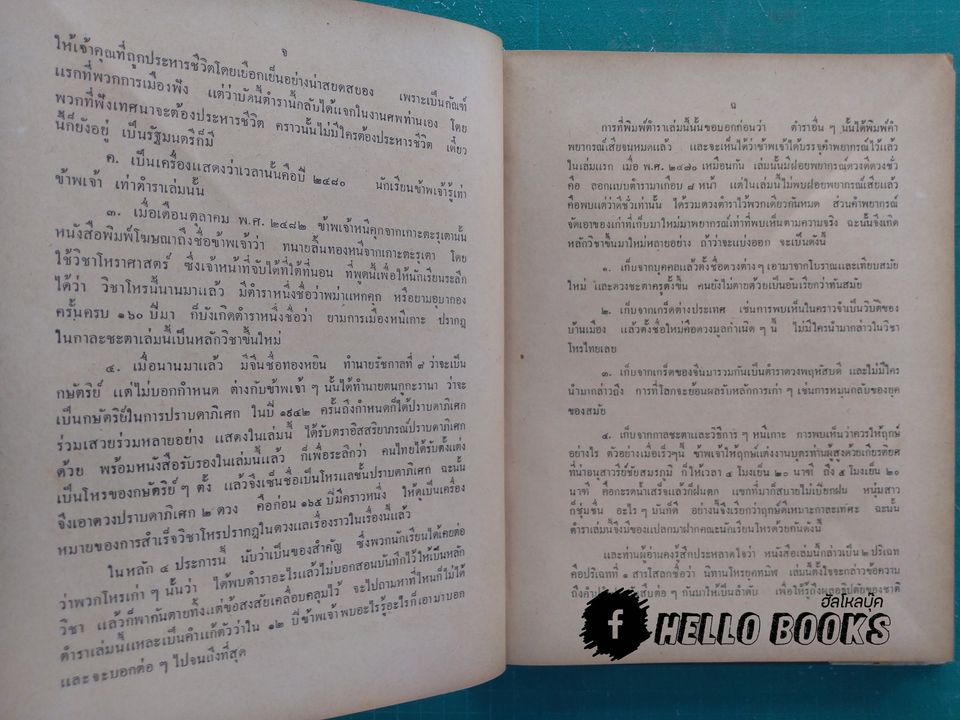 จ
ให้เจ้าคุณที่ถูกประหารชีวิตโดยเยือกเย็นอย่างน่าสยดสยอง เพราะเป็นกัณฑ์
แรกที่พวกการเมืองฟัง แต่ว่าบัดนี้ตำรานี้กลับได้แจกในงานศพท่านเอง โดย
พวกที่ฟังเทศนาจะต้องประหารชีวิต คราวนั้นไม่มีใครต้องประหารชีวิต เดี๋ยว
นี้ก็ยังอยู่ เป็นรัฐมนตรีก็มี
ค. เป็นเครื่องแสดงว่าเวลานั้นคือปี ๒๔๘๐ นักเรียนข้าพเจ้ารู้เท่า
ข้าพเจ้า เท่าตำราเล่มนั้น
๓. เมื่อเดือนตุลาคม พ.ศ. ๒๔๘๒ ข้าพเจ้าหนีคุกจากเกาะตะรุเตานั้น
หนังสือพิมพ์โฆษณาถึงชื่อข้าพเจ้าว่า ทนายลิ้นทองหนีจากเกาะตะรุเตา โดย
ใช้วิชาโหราศาสตร์ ซึ่งเจ้าหน้าที่จับได้ที่ใต้ที่นอน ที่พูดนี้เพื่อให้นักเรียนระลึก
ได้ว่า วิชาโหรนี้นานมาแล้ว มีตำราหนึ่งชื่อว่าพม่าแหกคุก หรือยามอุบากอง
ครั้นครบ ๑๖๐ ปีมา ก็บังเกิดตำราหนึ่งชื่อว่า ยามการเมืองหนีเกาะ ปรากฏ
ในกาละชะตาเล่มนี้เป็นหลักวิชาขึ้นใหม่
๔. เมื่อนานมาแล้ว มีจีนชื่อทองหยิน ทำนายรัชกาลที่ ๗ ว่าจะเป็น
กษัตริย์ แต่ไม่บอกกำหนด ต่างกับข้าพเจ้า ๆ นั้นได้ทำนายตนกูกะรานา ว่าจะ
เป็นกษัตริย์ในการปราบดาภิเศก ในปี ๑๙๔๒ ครั้นถึงกำหนดก็ได้ปราบดาภิเศก
ร่วมเสวยร่วมหลายอย่าง แสดงในเล่มนี้ ได้รับตราอิสสริยาภรณ์ปราบดาภิเศก
ด้วย พร้อมหนังสือรับรองในเล่มนี้แล้ว ก็เพื่อระลึกว่า คนไทยได้รับตั้งแต่ง
เป็นโหรของกษัตริย์ ๆ ตั้ง แล้วจึงเซ็นชื่อเป็นโหรแลชั้นปราบดาภิเศก ฉะนั้น
จึงเอาดวงปราบดาภิเศก ๒ ดวง คือก่อน ๑๖๕ ปีมีคราวหนึ่ง ให้ดูเป็นเครื่อง
หมายของการสำเร็จวิชาโหรปรากฏในดวงและเรื่องราวในเรื่องนี้แล้ว
ในหลัก ๔ ประการนี้ นับว่าเป็นของสำคัญ ซึ่งพวกนักเรียนได้เคยต่อ
ว่าพวกโหรเก่า ๆ นั้นว่า ได้พบตำราอะไรแล้วไม่บอกสอนบันทึกไว้ให้เป็นหลัก
วิชา แล้วก็พากันตายทั้งแต่ข้อสงสัยเคลือบคลุมไว้ จะไปถามหาที่ไหนก็ไม่ได้
ตำราเล่มนี้แหละเป็นคำแก้ตัวว่าใน ๑๒ ปี ข้าพเจ้าพบอะไรรู้อะไรก็เอามาบอก
และจะบอกต่อ ๆ ไปจนถึงที่สุด
ฉ
การที่พิมพ์ตำราเล่มนี้นั้นขอบอกก่อนว่า ตำราอื่น ๆ นั้นได้พิมพ์คำ
พยากรณ์เสียจนหมดแล้ว และจะเห็นได้ว่าข้าพเจ้าได้บรรจุคำพยากรณ์ไว้แล้ว
ในเล่มแรก เมื่อ พ.ศ. ๒๔๗๐ เหมือนกัน เล่มนั้นมีฝอยพยากรณ์ดวงดีดวงชั่ว
คือ ลอกแบบตำรามาเกือบ ๘ หน้า แต่ในเล่มนี้ไม่พบฝอยพยากรณ์เสียแล้ว
คือพบแต่ว่าดีชั่วเท่านั้น ได้รวมดวงตำราไว้พวกเดียวกันหมด ส่วนคำพยากรณ์
จัดเอาของเก่าที่เก็บมาใหม่มาพยากรณ์เท่าที่พบเห็นตามความจริง ฉะนั้นจึงเทิด
หลักวิชาขึ้นมาใหม่หลายอย่าง ถ้าว่าจะแบ่งออก จะเป็นดังนี้
๑. เก็บจากบุคคลแล้วตั้งชื่อดวงต่าง ๆ เอามาจากโบราณและเทียบสมัย
ใหม่ และดวงชะตาครูตั้งขึ้น คนยังไม่ตายด้วยเป็นอันเรียกว่าทันสมัย
๒. เก็บจากเกร็ดต่างประเทศ เช่นการพบเห็นในคราวจำเป็นวิบัติของ
บ้านเมือง แล้วตั้งชื่อใหม่คือดวงมูลกำเนิด ๆ นี้ ไม่มีใครนำมากล่าวในวิชา
โหรไทยเลย
๓. เก็บจากเกร็ดของจีนมารวมกันเป็นตำราดวงพฤหัสบดี และไม่มีใคร
นำมากล่าวถึง การที่โลกจะย้อนผลรับหลักการเก่า ๆ เช่นการหมุนกลับของยุค
ของสมัย
๔. เก็บจากกาลชะตาและวิธีการ ๆ หนีเกาะ การพบเห็นว่าควรให้ฤกษ์
อย่างไร ตัวอย่างเมื่อเร็วๆนี้ ข้าพเจ้าให้ฤกษ์แต่งงานบุตรท่านผู้สูงด้วยเกียรติยศ
ที่น่าอนุสาวรีย์ชัยสมรภูมิ ก็ให้เวลา ๔ โมงเย็น ๒๐ นาที ถึง ๕ โมงเย็น ๒๐
นาที คือกะรดน้ำเสร็จแล้วก็ฝนตก แขกที่มาก็สบายไม่เปียกฝน หนุ่มสาว
ก็ชุ่มชื่น อะไร ๆ มันก็ดี อย่างนี้จึงเรียกว่าฤกษ์ดีเหมาะกาละเทศะ ฉะนั้น
ตำราเล่มนี้จึงมีของแปลกมาฝากคณะนักเรียนโหรด้วยกันดังนี้
และท่านผู้อ่านคงรู้สึกประหลาดใจว่า หนังสือเล่มนี้กล่าวเป็น ๒ ปริเฉท
คือปริเฉทที่ ๑ สารโสลกชื่อว่า นิทานโหรยุคทมิฬ เล่มนี้ตั้งใจจะกล่าวข้อความ
สืบต่อ ๆ กันมาให้เป็นลำดับ เพื่อให้รู้ถึงผลอธิปตัยของชาติ
ฮัลโหลบุ๊ค
f HELLO BOOKS